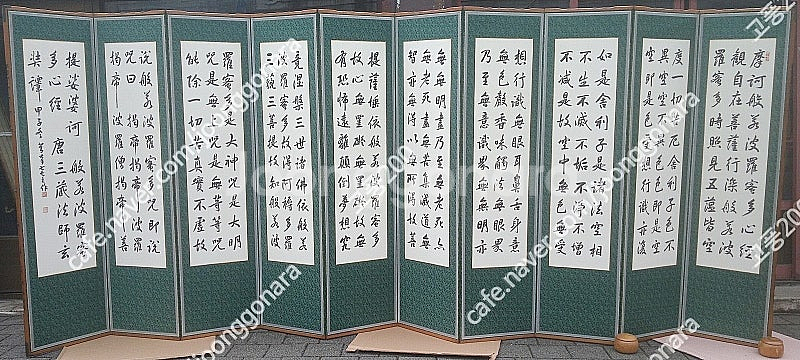 摩訶般若波羅蜜多心經
觀自在菩薩行深般若波
羅蜜多時照見五蘊皆空
度一切苦厄舍利子色不
異空空不異色色即是空
空即是色受想行識亦復
如是舍利子是諸法空相
不生不滅不垢不淨不增
不減是故空中無色無受
想行識無眼耳鼻舌身意
無色聲香味觸法無眼界
乃至無意識界無無明亦
無無明盡乃至無老死亦
無老死盡無苦集滅道無
智亦無得以無所得故菩
提薩埵依般若波羅蜜多
故心無罣礙無罣礙故無
有恐怖遠離顛倒夢想究
竟涅槃三世諸佛依般若
波羅蜜多故得阿耨多羅
三藐三菩提故知般若波
羅蜜多是大神呪是大明
呪是無上呪是無等等呪
能除一切苦真實不虛故
說般若波羅蜜多呪即說
呪曰 揭帝揭帝 波羅
揭帝 波羅僧揭帝 菩
提娑婆訶 般若波羅蜜
多心經 唐三藏法師玄
奘譯 甲子
cafe.naver.com/gopoonggonara